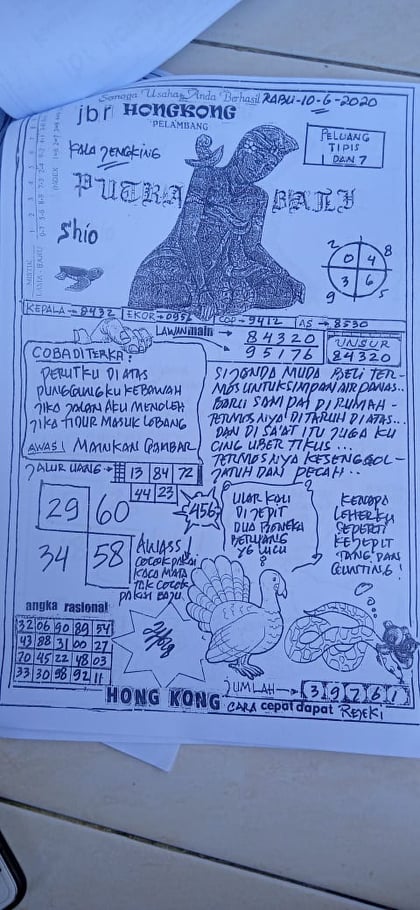 Semoga Usaha Anda Berhasil RABU-10-6-2020
jbr HONGKONG
PELAMBANG
KALA JENGKING
PELUANG
TIPIS
1 DAN 7
PUTRA BALI
Shio
2 8
0 4
3 6
9 5
KEPALA → 8432 EKOR → 0956 COP → 9412 AS → 8530
LAWAN main → 84320
→ 95176
UNSUR
84320
COBA DITERKA!
PERUTKU DI ATAS
PUNGGUNGKU KEBAWAH
JIKA JALAN AKU MENOLEH
JIKA TIDUR MASUK LOBANG
AWAS! MAINKAN GAMBAR
SI JANDA MUDA BELI TER-
MOS UNTUK SIMPAN AIR PANAS..
BARU SAMPAI DI RUMAH-
TERMOSNYA DITARUH DI ATAS...
DAN DI SA'AT ITU JUGA KU
CING UBER TIKUS..
TERMOSNYA KESENGGOL-
JATUH DAN PECAH..
JALUR UANG → 13 84 72
44 23
29 60
34 58
456
AWASS!
COCOK PAKAI
KACA MATA
TAK COCOK
PAKAI BAJU
ULAR KALI
DI JEPIT
DUA BONEKA
BERUANG
YG LUCU
KENAPA
LEHERKU
SEPERTI
KEJEPIT
TANG DAN
GUNTING!
angka rasional
32 06 90 89 54
43 88 31 00 27
70 45 22 48 03
33 30 98 92 11
HONG KONG
JUMLAH → 3 9 7 6 1
CARA cepat dapat REJEKI